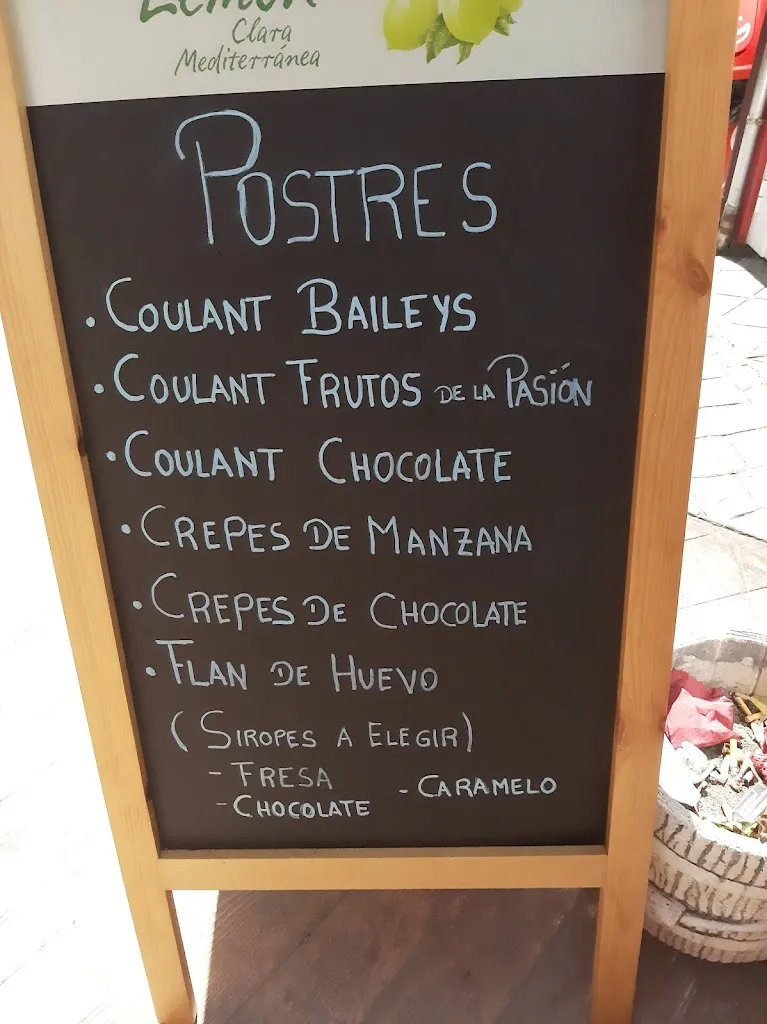 Lemon
Clara
Mediterránea
POSTRES
• COULANT BAILEYS
• COULANT FRUTOS DE LA PASIÓN
• COULANT CHOCOLATE
• CREPES DE MANZANA
• CREPES DE CHOCOLATE
• FLAN DE HUEVO
(SIROPES A ELEGIR)
- FRESA - CARAMELO
- CHOCOLATE